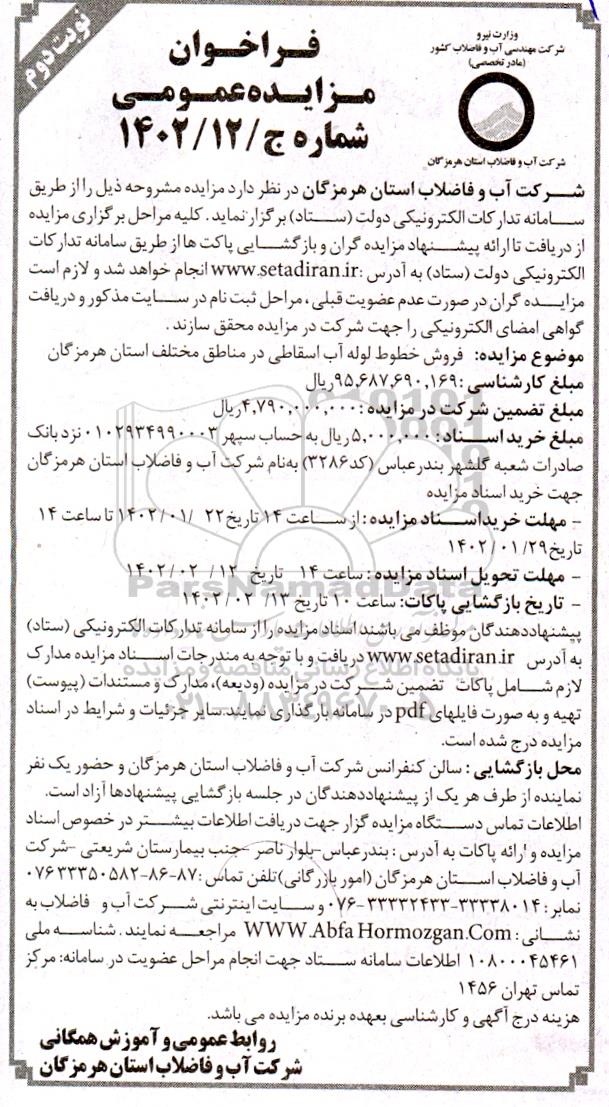 نوبت دوم
وزارت نیرو
شرکت مهندسی آب و فاضلاب کشور
(مادر تخصصی)
شرکت آب و فاضلاب استان هرمزگان
فراخوان
مزایده عمومی
شماره ج/۱۴۰۲/۱۲
شرکت آب و فاضلاب استان هرمزگان در نظر دارد مزایده مشروحه ذیل را از طریق
سامانه تدارکات الکترونیکی دولت (ستاد) برگزار نماید. کلیه مراحل برگزاری مزایده
از دریافت تا ارائه پیشنهاد مزایده گران و بازگشایی پاکت ها از طریق سامانه تدارکات
الکترونیکی دولت (ستاد) به آدرس :www.setadiran.ir انجام خواهد شد و لازم است
مزایده گران در صورت عدم عضویت قبلی، مراحل ثبت نام در سایت مذکور و دریافت
گواهی امضای الکترونیکی را جهت شرکت در مزایده محقق سازند .
موضوع مزایده: فروش خطوط لوله آب اسقاطی در مناطق مختلف استان هرمزگان
مبلغ کارشناسی :۹۵,۶۸۷,۶۹۰,۱۶۹ریال
مبلغ تضمین شرکت در مزایده :۴,۷۹۰,۰۰۰,۰۰۰ریال
مبلغ خرید اسناد: ۵,۰۰۰,۰۰۰ ریال به حساب سپهر ۰۱۰۲۹۳۴۹۹۰۰۰۳ نزد بانک
صادرات شعبه گلشهر بندرعباس (کد۳۲۸۶) به‌نام شرکت آب و فاضلاب استان هرمزگان
جهت خرید اسناد مزایده
- مهلت خرید اسناد مزایده : از ساعت ۱۴ تاریخ ۲۲ /۱۴۰۲/۰۱ تا ساعت ۱۴
تاریخ ۱۴۰۲/۰۱/۲۹
- مهلت تحویل اسناد مزایده : ساعت ۱۴ تاریخ ۱۲/ ۱۴۰۲/۰۲
- تاریخ بازگشایی پاکات: ساعت ۱۰ تاریخ ۱۳/ ۱۴۰۲/۰۲
پیشنهاددهندگان موظف می باشند اسناد مزایده را از سامانه تدارکات الکترونیکی (ستاد)
به آدرس www.setadiran.ir دریافت و با توجه به مندرجات اسناد مزایده مدارک
لازم شامل پاکات تضمین شرکت در مزایده (ودیعه)، مدارک و مستندات (پیوست)
تهیه و به صورت فایلهای pdf در سامانه بارگذاری نمایند. سایر جزئیات و شرایط در اسناد
مزایده درج شده است.
محل بازگشایی : سالن کنفرانس شرکت آب و فاضلاب استان هرمزگان و حضور یک نفر
نماینده از طرف هر یک از پیشنهاددهندگان در جلسه بازگشایی پیشنهادها آزاد است.
اطلاعات تماس دستگاه مزایده گزار جهت دریافت اطلاعات بیشتر در خصوص اسناد
مزایده و ارائه پاکات به آدرس : بندرعباس-بلوار ناصر -جنب بیمارستان شریعتی -شرکت
آب و فاضلاب استان هرمزگان (امور بازرگانی) تلفن تماس :۸۷-۸۶-۰۷۶۳۳۳۵۰۵۸۲
نمابر : ۳۳۳۳۸۰۱۴-۰۷۶-۳۳۳۳۲۴۳۳ و سایت اینترنتی شرکت آب و فاضلاب به
نشانی : WWW.Abfa Hormozgan.Com مراجعه نمایند . شناسه ملی
۱۰۸۰۰۰۴۵۴۶۱ اطلاعات سامانه ستاد جهت انجام مراحل عضویت در سامانه: مرکز
تماس تهران ۱۴۵۶
هزینه درج آگهی و کارشناسی بعهده برنده مزایده می باشد.
روابط عمومی و آموزش همگانی
شرکت آب و فاضلاب استان هرمزگان
ParsNamadData
پایگاه اطلاع رسانی مناقصه و مزایده